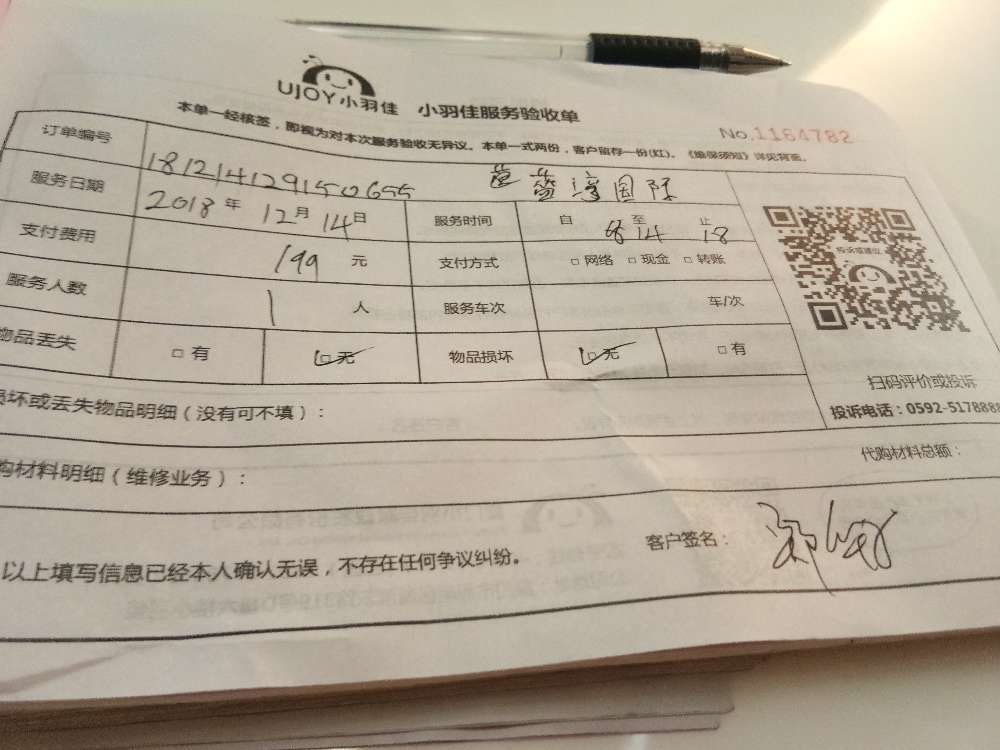 UJOY小羽佳 小羽佳服务验收单
No.1164782
本单一经核签，即视为对本次服务验收无异议。本单一式两份，客户留存一份(红)。《维保须知》详见背面。
订单编号 181214129150655 蓝湾国际
服务日期 2018年 12月 14日 服务时间 自 至 止 14 18
支付费用 199 元 支付方式 □网络 □现金 □转账
服务人数 1 人 服务车次 车/次
物品丢失 □有 □无 物品损坏 □无 □有
投诉或建议
扫码评价或投诉
投诉电话：0592-517888
损坏或丢失物品明细（没有可不填）：
代购材料总额：
购材料明细（维修业务）：
以上填写信息已经本人确认无误，不存在任何争议纠纷。 客户签名：